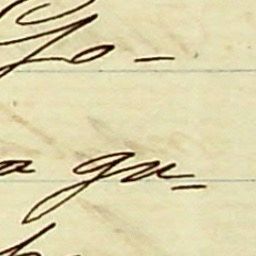 Yo-
a ga-